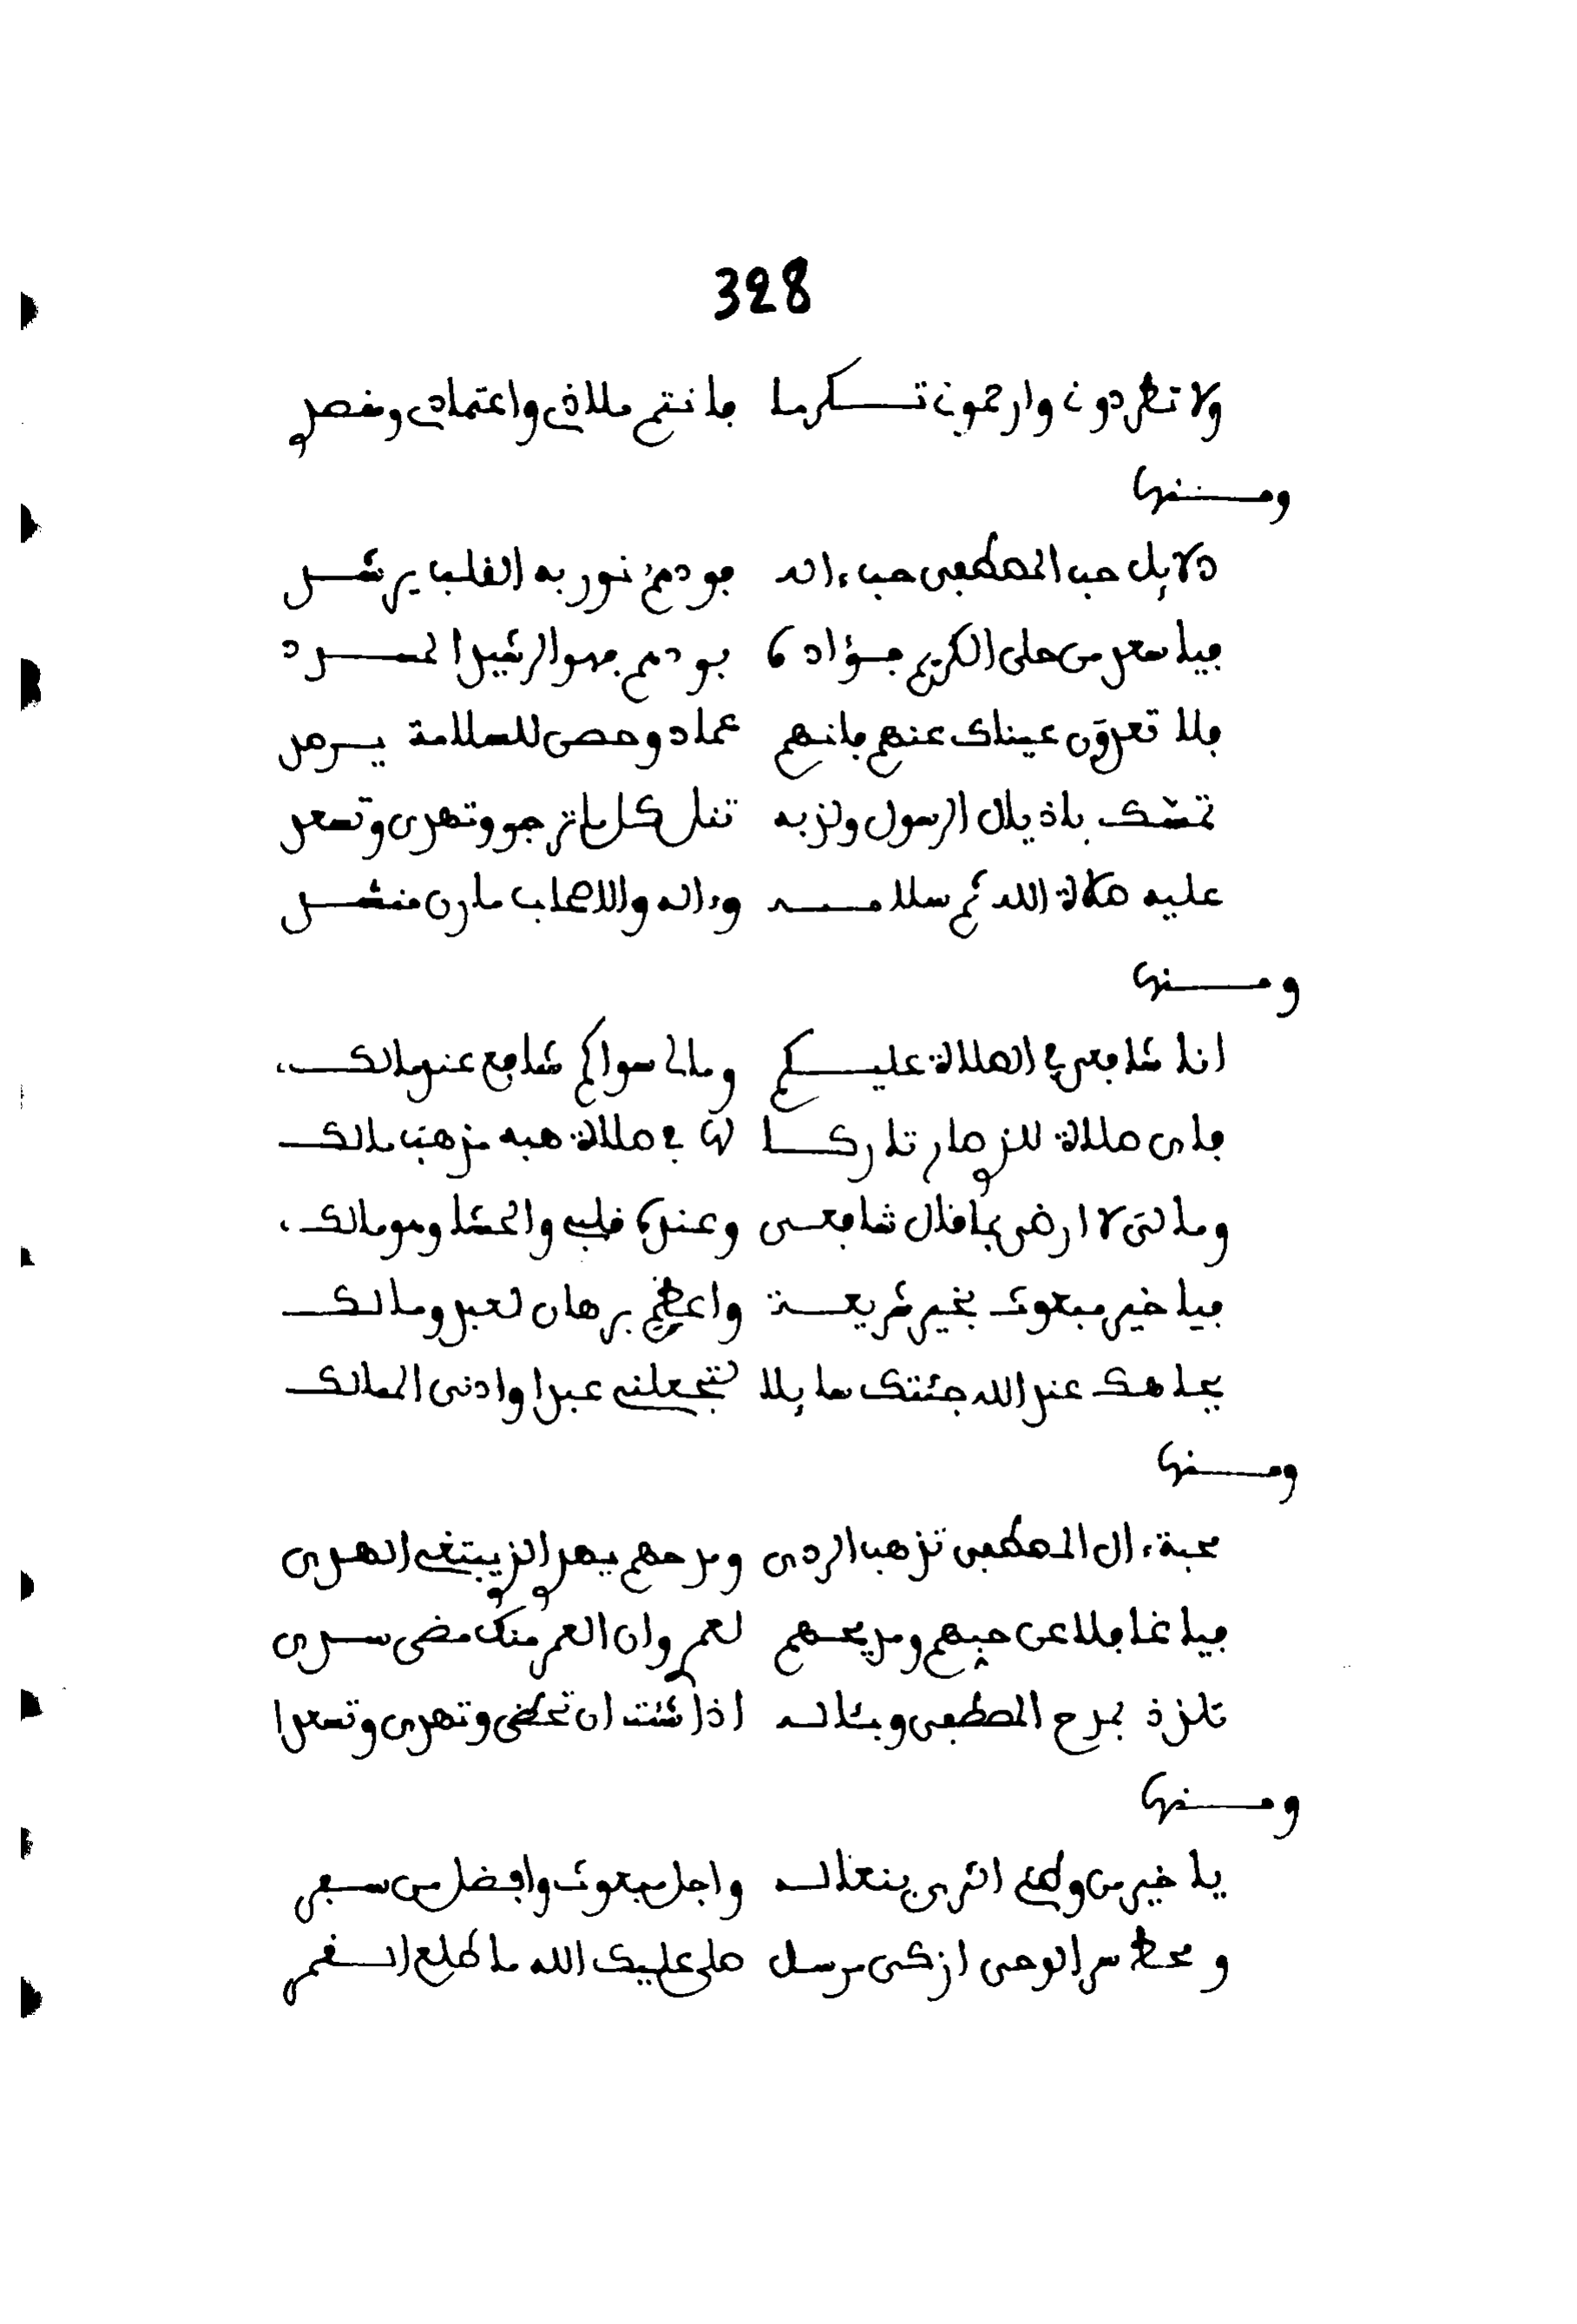 328
ولا تطردوني وارحموني تكرما فانتم ملاذي واعتمادي ومقصد
ومنها
دلايل حب المصطفى حب ءاله فودهم نور به القلب يرشد
فيا سعد من حلى الكريم فؤاده بودهم فهو الرشيد المسدد
فلا تعدون عيناك عنهم فانهم عماد وحصن للسلامة يرصد
تمسك باذيال الرسول ولذ به تنل كل ما ترجو وتهدى وتسعد
عليه صلاة الله ثم سلامه وءاله والاصحاب مارن منشد
ومنها
انا شافعي في الصلاة عليكم ومالي سواكم شافع عند مالك
فاي صلاة للذمار تاركا لها في صلاة هبه مذهب مالك
وما لي لا ارضى بما قال شافعي وعنده قلبي والحشا وهو مالك
فيا خير مبعوث بخير شريعة واعظم برهان لعبد ومالك
بجاهك عند الله جئتك سايلا لتجعلني عبدا وادنى الممالك
ومنها
محبة ءال المصطفى تذهب الردى ومدحهم يهدي الذي يبتغي الهدى
فيا غافلا عن حبهم ومديحهم لعمري وان العمر منك مضى سدى
تلذذ بمدح المصطفى وبئاله اذا شئت ان تحظى وتهدى وتسعدا
ومنها
يا خير من وطئ الثرى بنعاله واجل مبعوث وافضل من سفر
ومحط سر الوحي ازكى مرسل صلى عليك الله ما طلع القمر